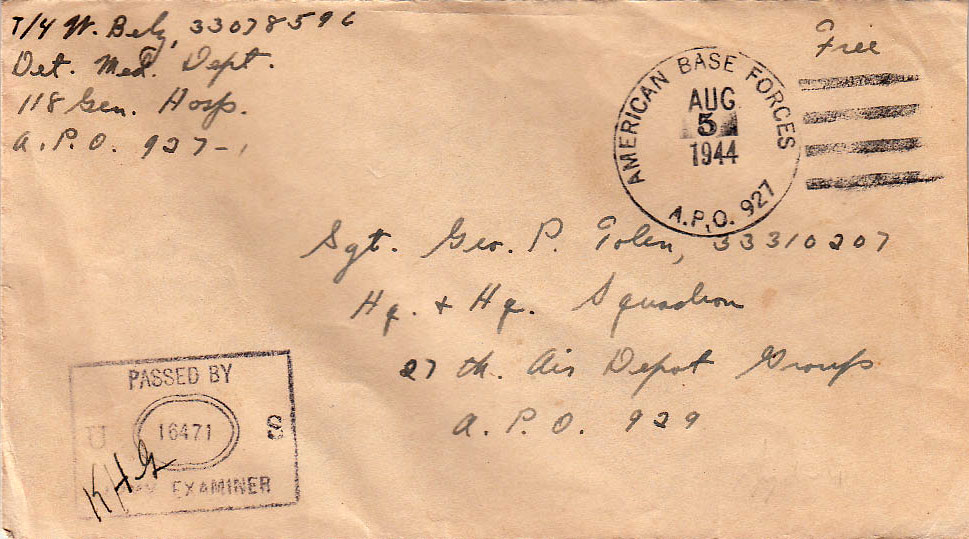 T/4 W. Belz, 33078596
Det. Med. Dept.
118 Gen. Hosp.
A.P.O. 927-
Free
AMERICAN BASE FORCES
AUG
5
1944
A.P.O. 927
Sgt. Geo. P. Tolen, 33310207
Hq. + Hq. Squadron
27th. Air Depot Group
A. P. O. 929
PASSED BY
U 16471 S
EXAMINER
KHG